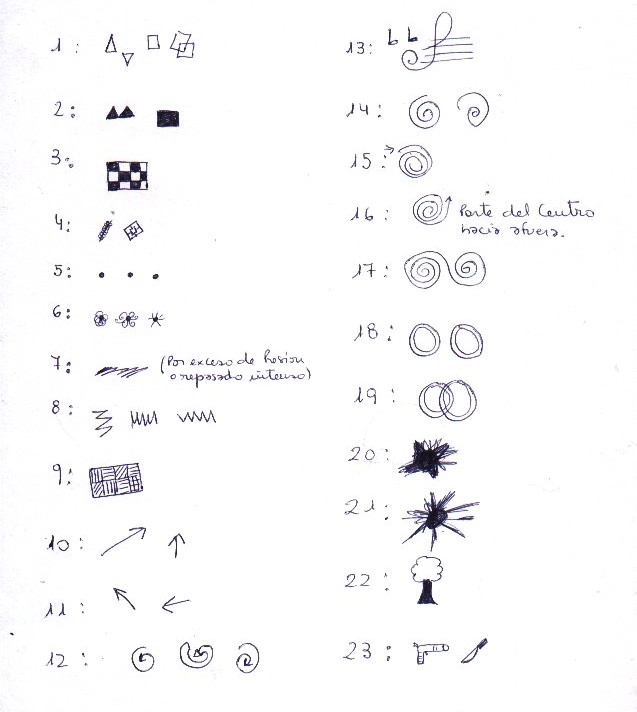 1:
2:
3:
4:
5:
6:
7: (Por exceso de presion
o repasado intenso)
8:
9:
10:
11:
12:
13:
14:
15:
16: Parte del Centro
hacia afuera.
17:
18:
19:
20:
21:
22:
23: